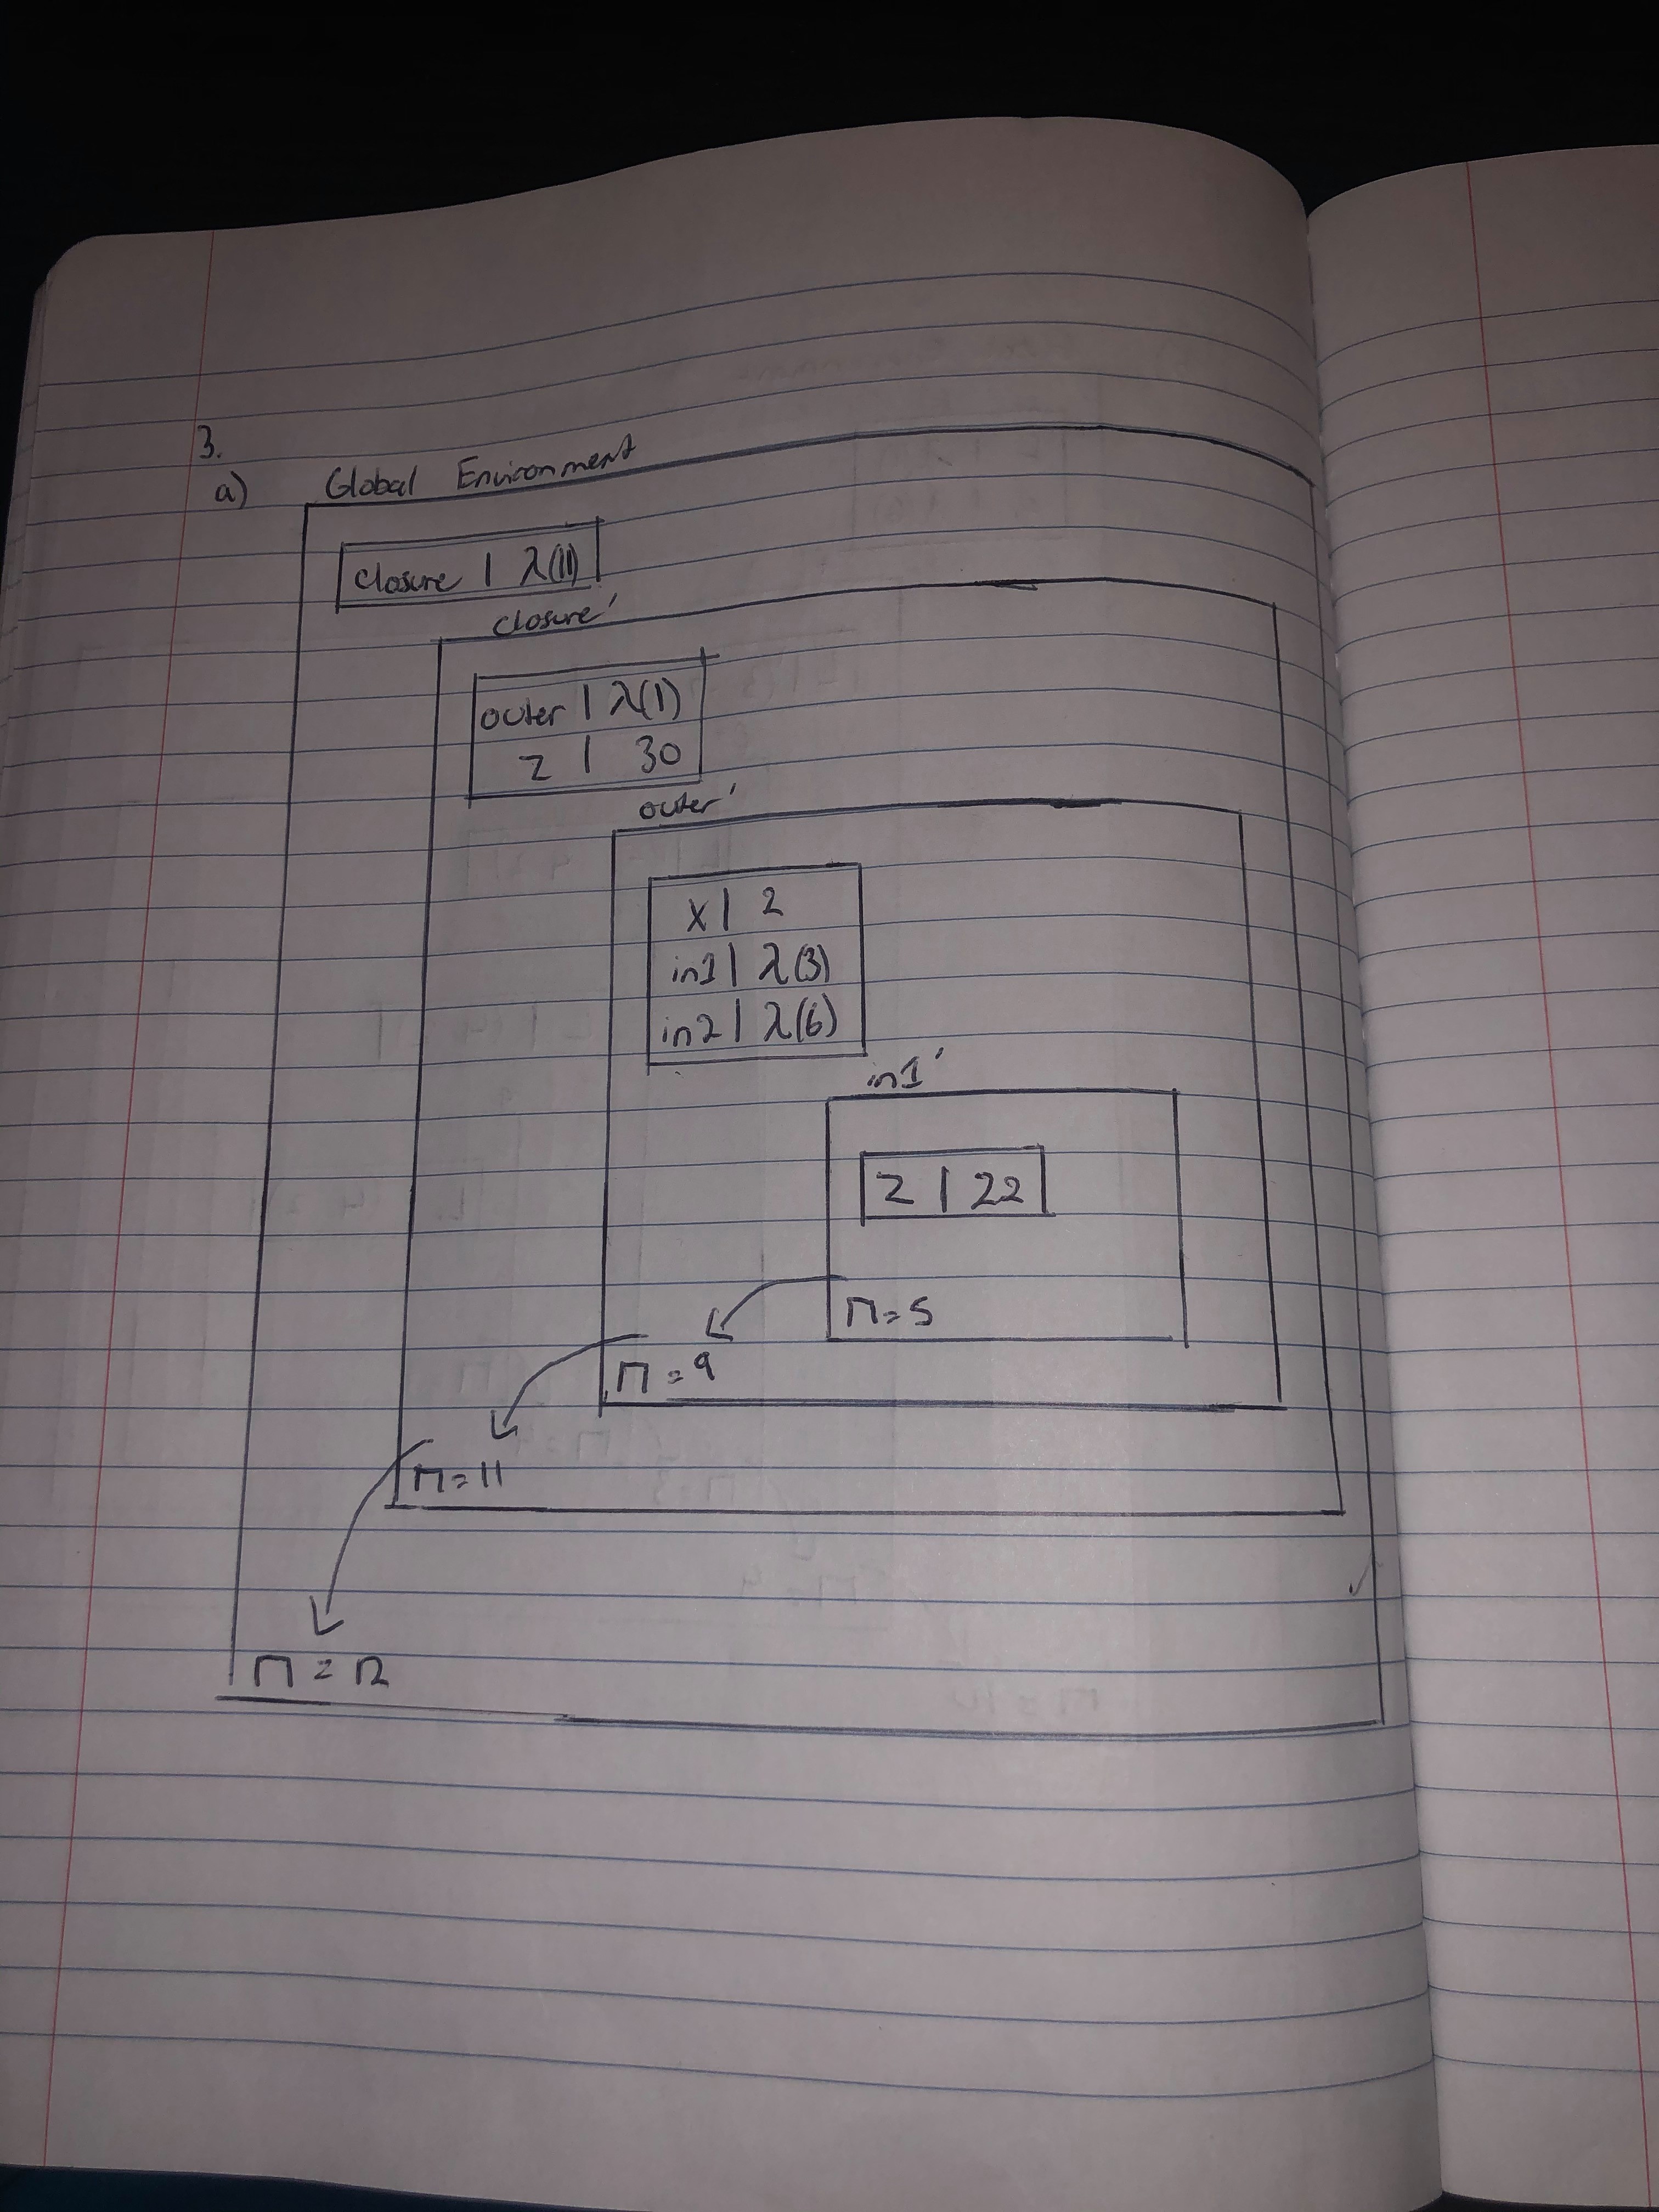 3.
a) Global Environment
closure | λ(11)
closure'
outer | λ(1)
z | 30
outer'
x | 2
in1 | λ(3)
in2 | λ(6)
in1'
z | 22
Π=5
Π=9
Π=11
Π=12